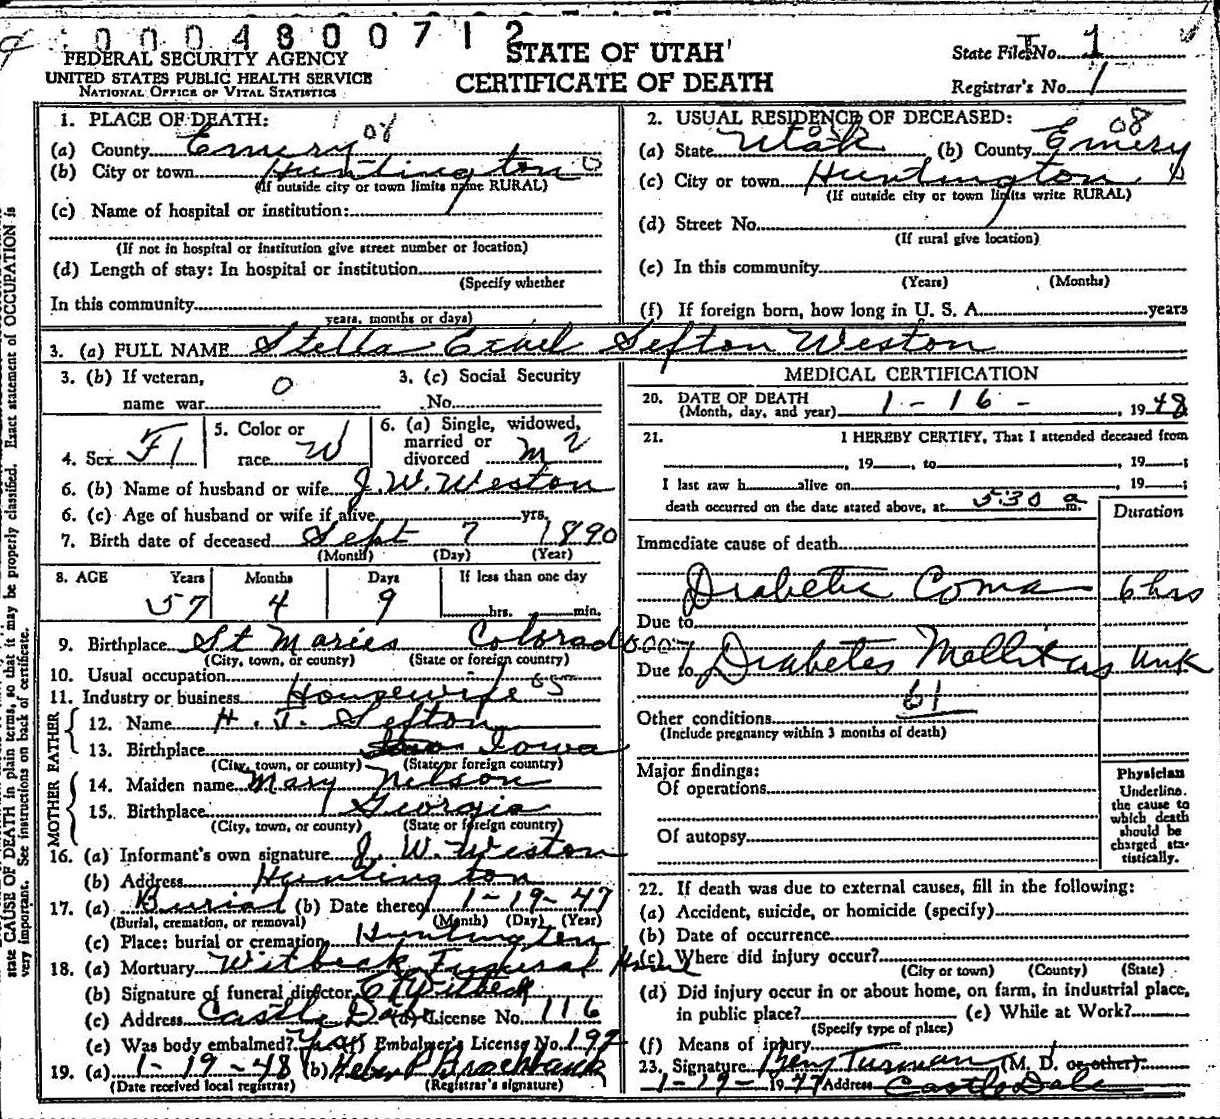 0004800712
FEDERAL SECURITY AGENCY
UNITED STATES PUBLIC HEALTH SERVICE
NATIONAL OFFICE OF VITAL STATISTICS
STATE OF UTAH
CERTIFICATE OF DEATH
State File No. 1
Registrar's No. 1
state CAUSE OF DEATH in plain terms, so that it may be properly classified. Exact statement of OCCUPATION is
very important. See instructions on back of certificate.
1. PLACE OF DEATH:
08
(a) County Emery
(b) City or town Huntington 0
(If outside city or town limits name RURAL)
(c) Name of hospital or institution:
(If not in hospital or institution give street number or location)
(d) Length of stay: In hospital or institution
(Specify whether
In this community
years, months or days)
2. USUAL RESIDENCE OF DECEASED:
08
(a) State Utah (b) County Emery
(c) City or town Huntington
(If outside city or town limits write RURAL)
(d) Street No.
(If rural give location)
(e) In this community
(Years) (Months)
(f) If foreign born, how long in U. S. A. years
3. (a) FULL NAME Stella Ethel Sefton Weston
3. (b) If veteran, 0
name war
3. (c) Social Security
No.
4. Sex F 1
5. Color or
race W 1
6. (a) Single, widowed,
married or
divorced M 2
6. (b) Name of husband or wife J. W. Weston
6. (c) Age of husband or wife if alive yrs.
7. Birth date of deceased Sept 7 1890
(Month) (Day) (Year)
8. AGE Years Months Days If less than one day
57 4 9 hrs. min.
9. Birthplace St Maries Colorado
(City, town, or county) (State or foreign country)
10. Usual occupation
11. Industry or business Housewife
FATHER
12. Name H. T. Sefton
13. Birthplace Iowa
(City, town, or county) (State or foreign country)
MOTHER
14. Maiden name Mary Nelson
15. Birthplace Georgia
(City, town, or county) (State or foreign country)
16. (a) Informant's own signature J. W. Weston
(b) Address Huntington
17. (a) Burial (b) Date thereof 1-19-47
(Burial, cremation, or removal) (Month) (Day) (Year)
(c) Place: burial or cremation Huntington
18. (a) Mortuary Witbeck Funeral Home
(b) Signature of funeral director C Witbeck
(c) Address Castle Dale (d) License No. 116
(e) Was body embalmed? Yes (f) Embalmer's License No. 192
19. (a) 1-19-48 (b) Heber P Brockbank
(Date received local registrar) (Registrar's signature)
MEDICAL CERTIFICATION
20. DATE OF DEATH
(Month, day, and year) 1-16-, 1948
21. I HEREBY CERTIFY, That I attended deceased from
, 19 , to , 19 ;
I last saw h alive on , 19 ;
death occurred on the date stated above, at 530 a m.
Duration
Immediate cause of death
Diabetic Coma 6 hrs
Due to
Due to Diabetes Mellitus Unk
61
Other conditions
(Include pregnancy within 3 months of death)
Major findings:
Of operations
Of autopsy
Physician
Underline
the cause to
which death
should be
charged sta-
tistically.
22. If death was due to external causes, fill in the following:
(a) Accident, suicide, or homicide (specify)
(b) Date of occurrence
(c) Where did injury occur?
(City or town) (County) (State)
(d) Did injury occur in or about home, on farm, in industrial place,
in public place? (e) While at Work?
(Specify type of place)
(f) Means of injury
23. Signature Benj Turman (M. D. or other)
1-19-1947 Address Castle Dale